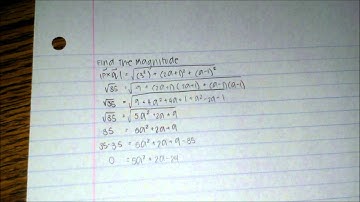 Find The Magnitude
|p⃗×q⃗| = √(3²) + (2a+1)² + (a-1)²
√35 = √9 + (2a+1)(2a+1) + (a-1)(a-1)
√35 = √9 + 4a² + 4a + 1 + a² - 2a + 1
√35 = √5a² + 2a + 9
35 = 5a² + 2a + 9
35-35 = 5a² + 2a + 9 - 35
0 = 5a² + 2a - 24